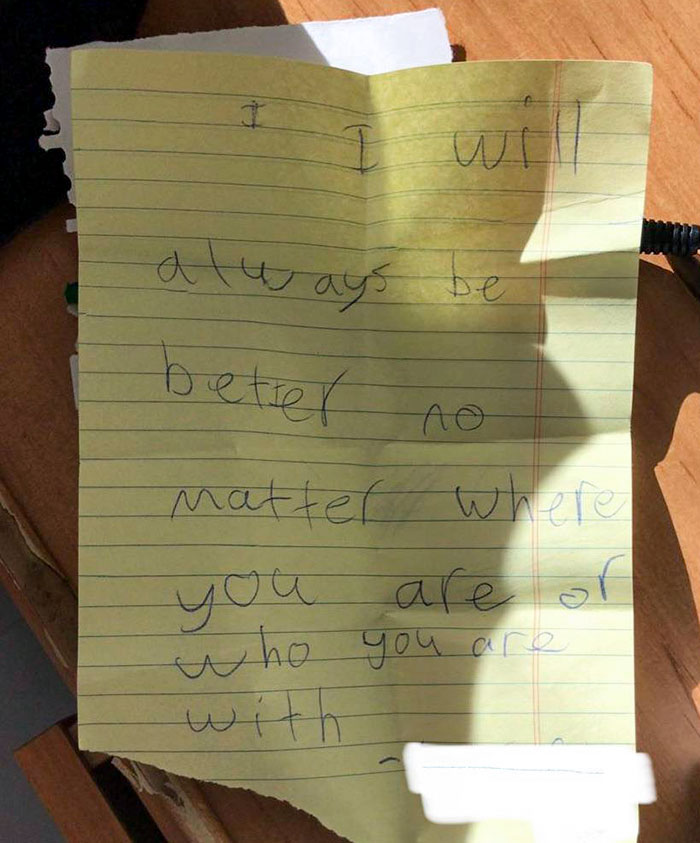 I I will
always be
better no
matter where
you are or
who you are
with